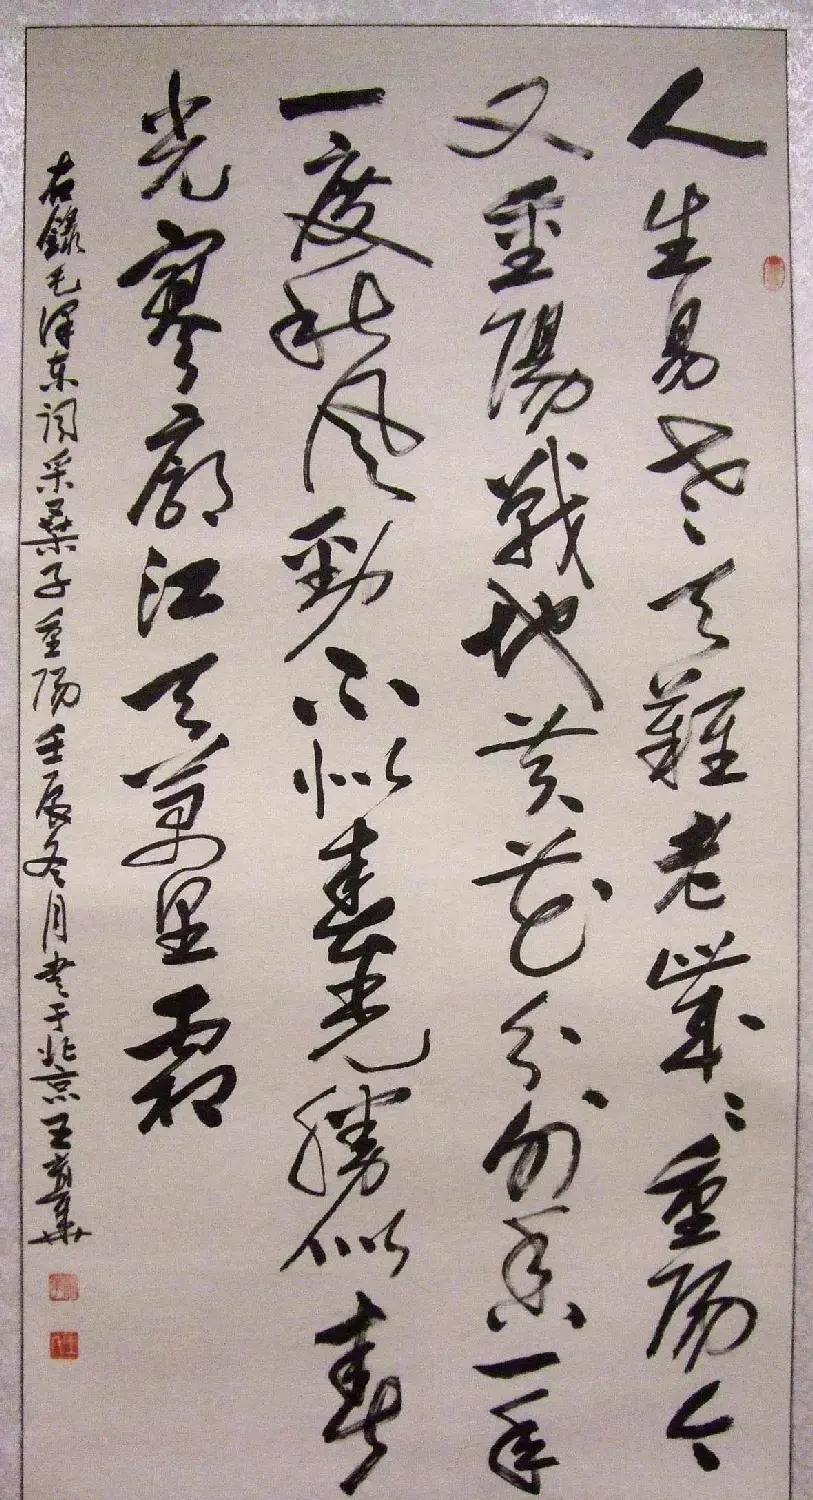 人生易老天難老歲〻重陽今
又重陽戰地黄花分外香一年
一度秋风勁不似春光勝似春
光寥廓江天萬里霜
右録毛泽东词采桑子重陽壬辰冬月书于北京王華